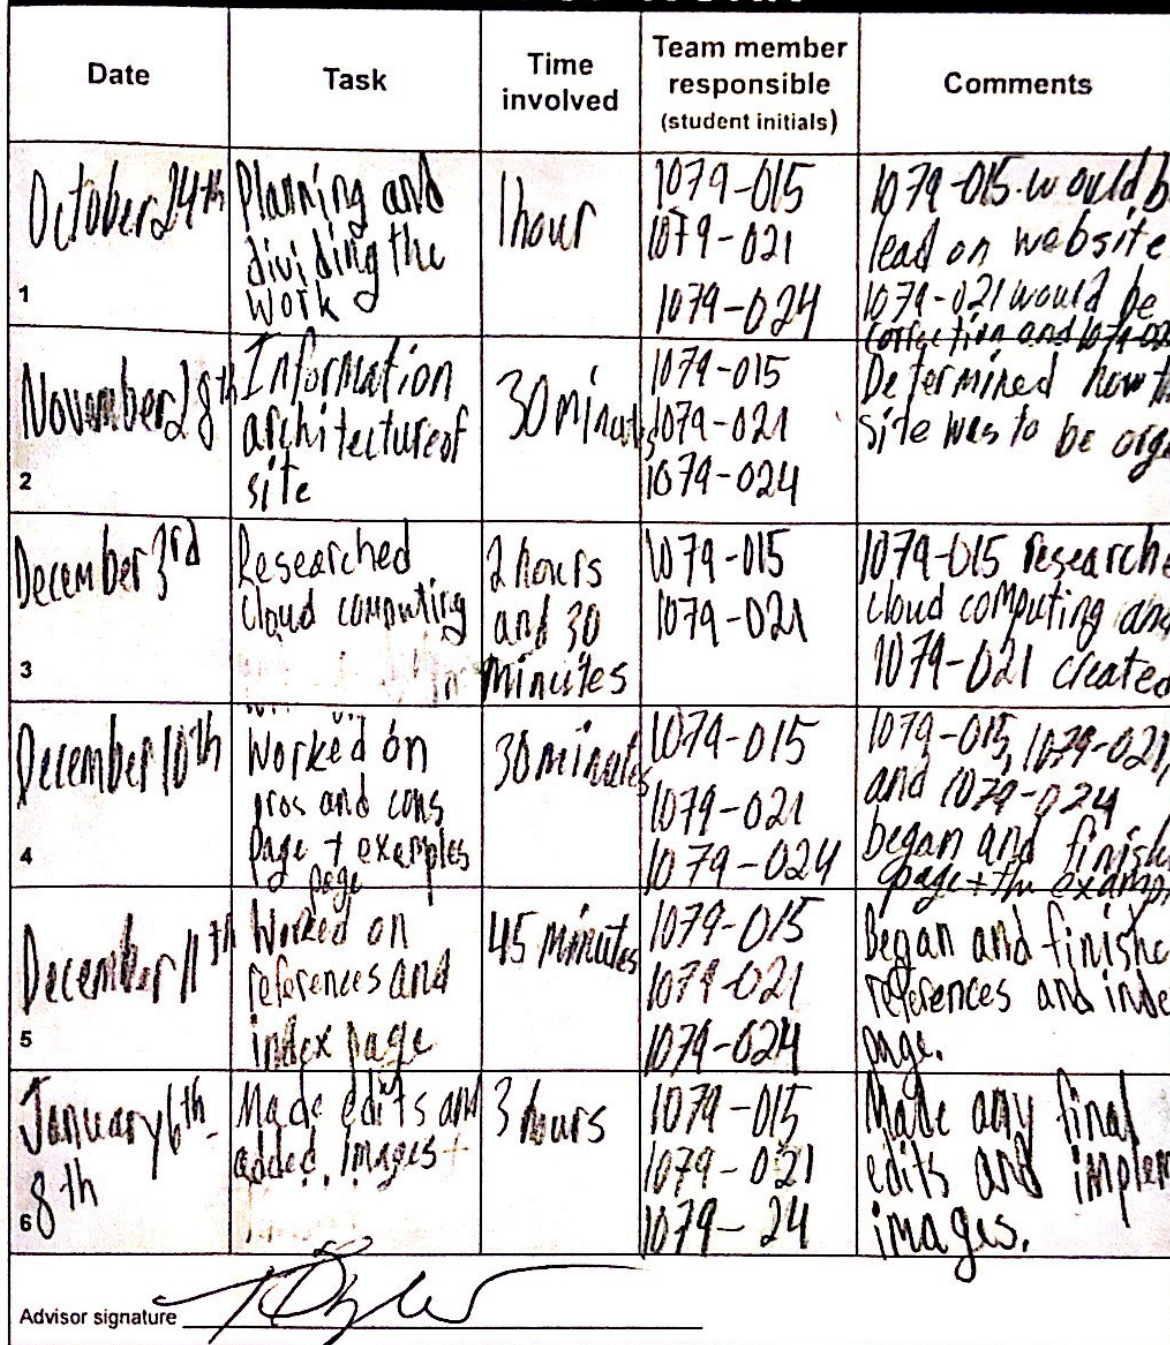 Date
Task
Time
involved
Team member
responsible
(student initials)
Comments
October 24th
1
Planning and
dividing the
work
1 hour
1079-015
1079-021
1079-024
1079-015 would b
lead on website
1079-021 would be
correction and
November 28th
2
Information
architecture of
site
30 minutes
1079-015
1079-021
1079-024
Determined how th
site was to be orga
December 3rd
3
Researched
cloud computing
2 hours
and 30
minutes
1079-015
1079-021
1079-015 researche
cloud computing and
1079-021 created
December 10th
4
Worked on
pros and cons
page + examples
page
30 minutes
1079-015
1079-021
1079-024
1079-015, 1079-021,
and 1079-024
began and finish
page + the examp
December 11th
5
Worked on
references and
index page
45 minutes
1079-015
1079-021
1079-024
Began and finishe
references and inde
page.
January 6th-
8th
6
Made edits and
added images +
3 hours
1079-015
1079-021
1079-24
Made any final
edits and implem
images.
Advisor signature